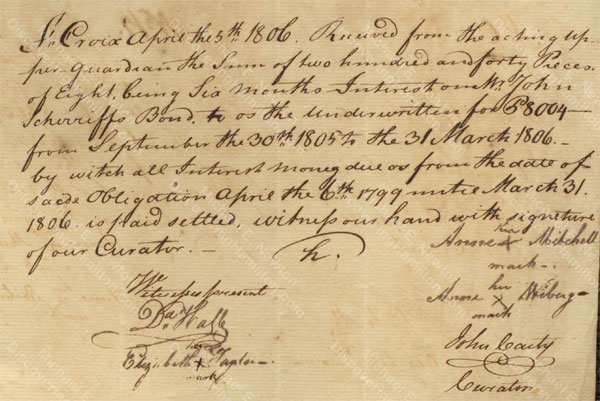 St. Croix April the 5th 1806. Received from the acting Up-
per-Guardian the Sum of two hundred and forty Pieces
of Eight, being Six months Interest on Mr. John
Scherriffs Bond, to os the underwritten for P8004—
from September the 30th 1805 to the 31 March 1806.—
by witch all Interest money due os from the date of
saede Obligation April the 6th 1799 until March 31.
1806. is paid settled, witness our hand with signature
of our Curator.—
Anne her x Mitchell
mark
Witnesses present
Anne her x Wiberg
mark
Da. Hall
Elizabeth her x Taylor
mark
John Carty
Curator